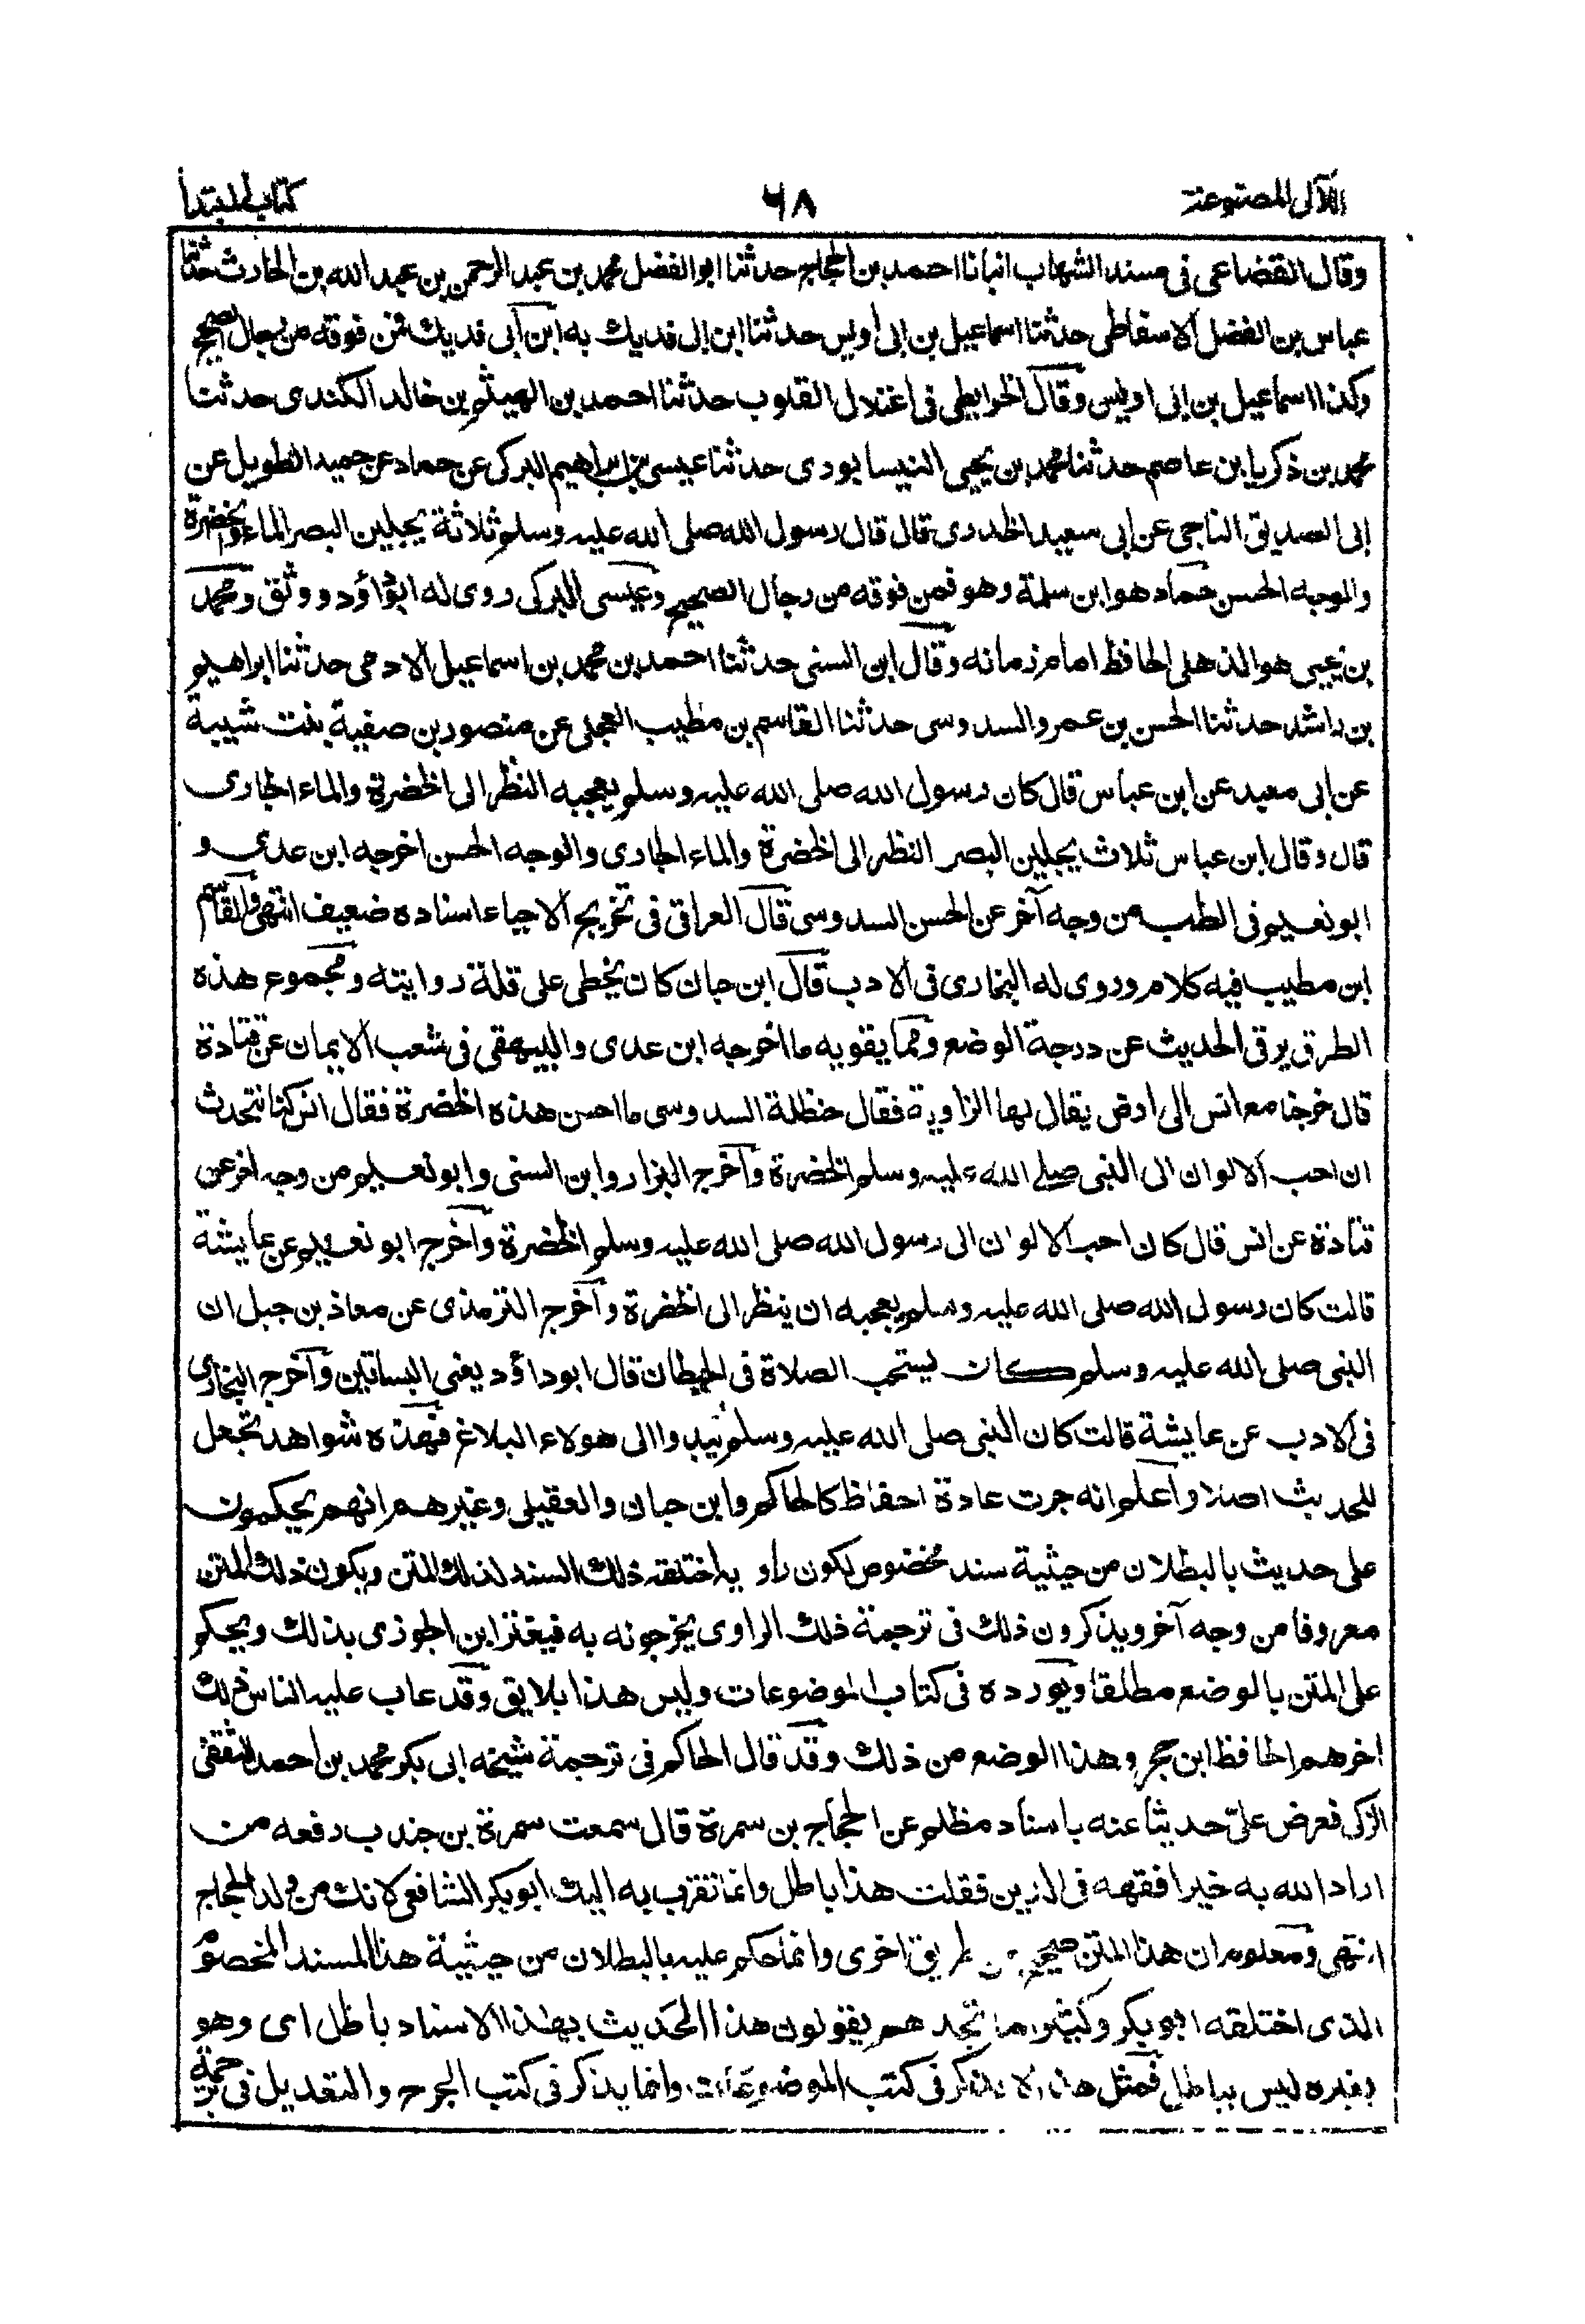 اللآلى المصنوعة
٦٨
كتاب المبتدأ
وقال القضاعى فى مسند الشهاب انبانا احمد بن الحجاج حدثنا ابو الفضل محمد بن عبد الرحمن بن عبد الله بن الحارث حدثنا
عباس بن الفضل الاسفاطى حدثنا اسماعيل بن ابى أويس حدثنا ابن ابى فديك به ابن أبى فديك فمن فوقه من رجال الصحيح
وكذا اسماعيل بن ابى اويس وقال الخرايطى فى اعتلال القلوب حدثنا احمد بن الهيثم بن خالد الكندى حدثنا
محمد بن زكريا ابن عاصم حدثنا محمد بن يحيى النيسابورى حدثنا عيسى بن ابراهيم البركى عن حماد عن حميد الطويل عن
ابى الصديق الناجى عن ابى سعيد الخدرى قال قال رسول الله صلى الله عليه وسلم ثلاثة يجلين البصر الماء والخضرة
والوجه الحسن حماد هو ابن سلمة وهو فمن فوقه من رجال الصحيح وعيسى البركى روى له ابو داؤد ووثق ومحمد
بن يحيى هو الذهلى الحافظ امام زمانه وقال ابن السنى حدثنا احمد بن محمد بن اسماعيل الادمى حدثنا ابراهيم
بن راشد حدثنا الحسن بن عمرو السدوسى حدثنا القاسم بن مطيب العجلى عن منصور بن صفية بنت شيبة
عن ابى معبد عن ابن عباس قال كان رسول الله صلى الله عليه وسلم يعجبه النظر الى الخضرة والماء الجارى
قال وقال ابن عباس ثلاث يجلين البصر النظر الى الخضرة والماء الجارى والوجه الحسن اخرجه ابن عدى و
ابو نعيم فى الطب من وجه آخر عن الحسن السدوسى قال العراقى فى تخريج الاحياء اسناده ضعيف انتهى والقاسم
ابن مطيب فيه كلام وروى له البخارى فى الادب قال ابن حبان كان يخطى على قلة روايته ومجموع هذه
الطرق يرقى الحديث عن درجة الوضع ومما يقويه ما اخرجه ابن عدى والبيهقى فى شعب الايمان عن قتادة
قال خرجنا مع انس الى ارض يقال لها الزاوية فقال حنظلة السدوسى ما احسن هذه الخضرة فقال انس كنا نتحدث
ان احب الالوان الى النبى صلى الله عليه وسلم الخضرة وأخرج البزار وابن السنى وابو نعيم من وجه اخر عن
قتادة عن انس قال كان احب الالوان الى رسول الله صلى الله عليه وسلم الخضرة وأخرج ابو نعيم عن عايشة
قالت كان رسول الله صلى الله عليه وسلم يعجبه ان ينظر الى الخضرة وأخرج الترمذى عن معاذ بن جبل ان
النبى صلى الله عليه وسلم كان يستحب الصلاة فى الحيطان قال ابو داؤد يعنى البساتين وأخرج البخارى
فى الادب عن عايشة قالت كان النبى صلى الله عليه وسلم يبدوا الى هولاء البلاغ فهذه شواهد تجعل
للحديث اصلا وأعلم انه جرت عادة الحفاظ كالحاكم وابن حبان والعقيلى وغيرهم انهم يحكمون
على حديث بالبطلان من حيثية سند مخصوص لكون راويه اختلقه ذلك السند لذلك المتن ويكون ذلك المتن
معروفا من وجه آخر ويذكرون ذلك فى ترجمة ذلك الراوى يخرجونه به فيغتر ابن الجوزى بذلك ويحكم
على المتن بالوضع مطلقا ويورده فى كتاب الموضوعات وليس هذا بلايق وقد عاب عليه الناس ذلك
اخرهم الحافظ ابن حجر وهذا الوضع من ذلك وقد قال الحاكم فى ترجمة شيخه ابى بكر محمد بن احمد الثقفى
الزكى فعرض علىّ حديثا عنه باسناد مظلم عن الحجاج بن سمرة قال سمعت سمرة بن جندب رفعه من
اراد الله به خيرا فقهه فى الدين فقلت هذا باطل وانما تقرب به اليك ابو بكر الشافعى لانك من ولد الحجاج
انتهى ومعلوم ان هذا المتن صحيح من طريق اخرى وانما حكم عليه بالبطلان من حيثية هذا المسند المخصوص
الذى اختلقه ابو بكر وكثيرا ما تجدهم يقولون هذا الحديث بهذا الاسناد باطل اى وهو
بغيره ليس بباطل فمثل هذا لا يذكر فى كتب الموضوعات وانما يذكر فى كتب الجرح والتعديل فى ترجمة